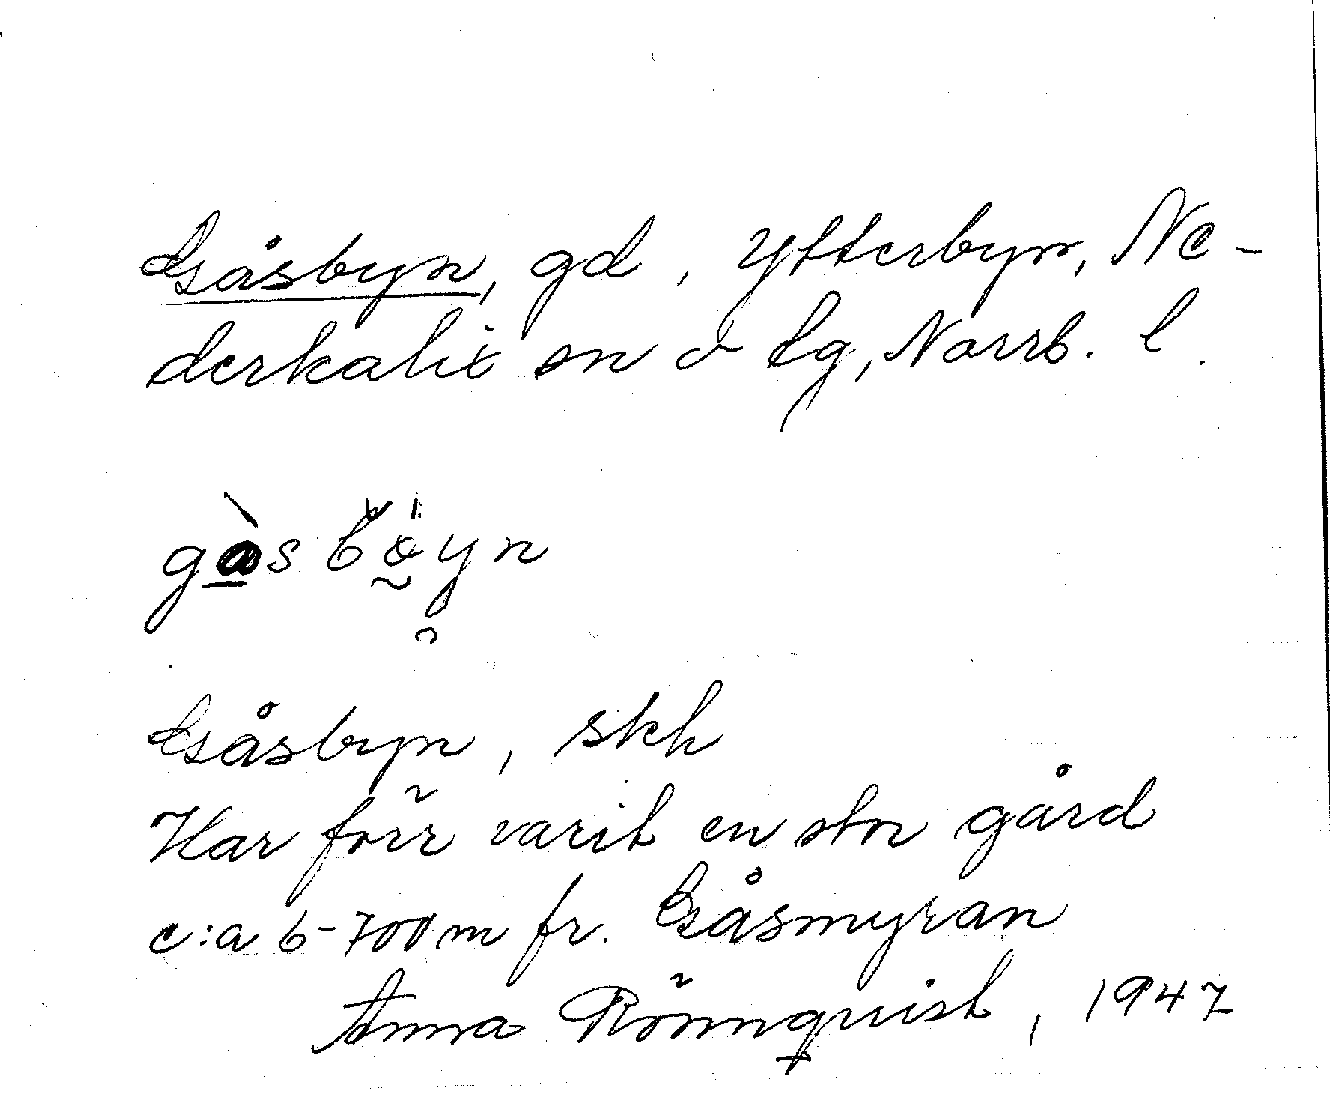 Gåsbyn, gd, Ytterbyn, Ne-
derkalix sn o tg, Norrb. l.
gàsböyn
Gåsbyn, skh
Har förr varit en stor gård
c:a 6-700 m fr. Gåsmyran
Anna Rönnquist, 1947